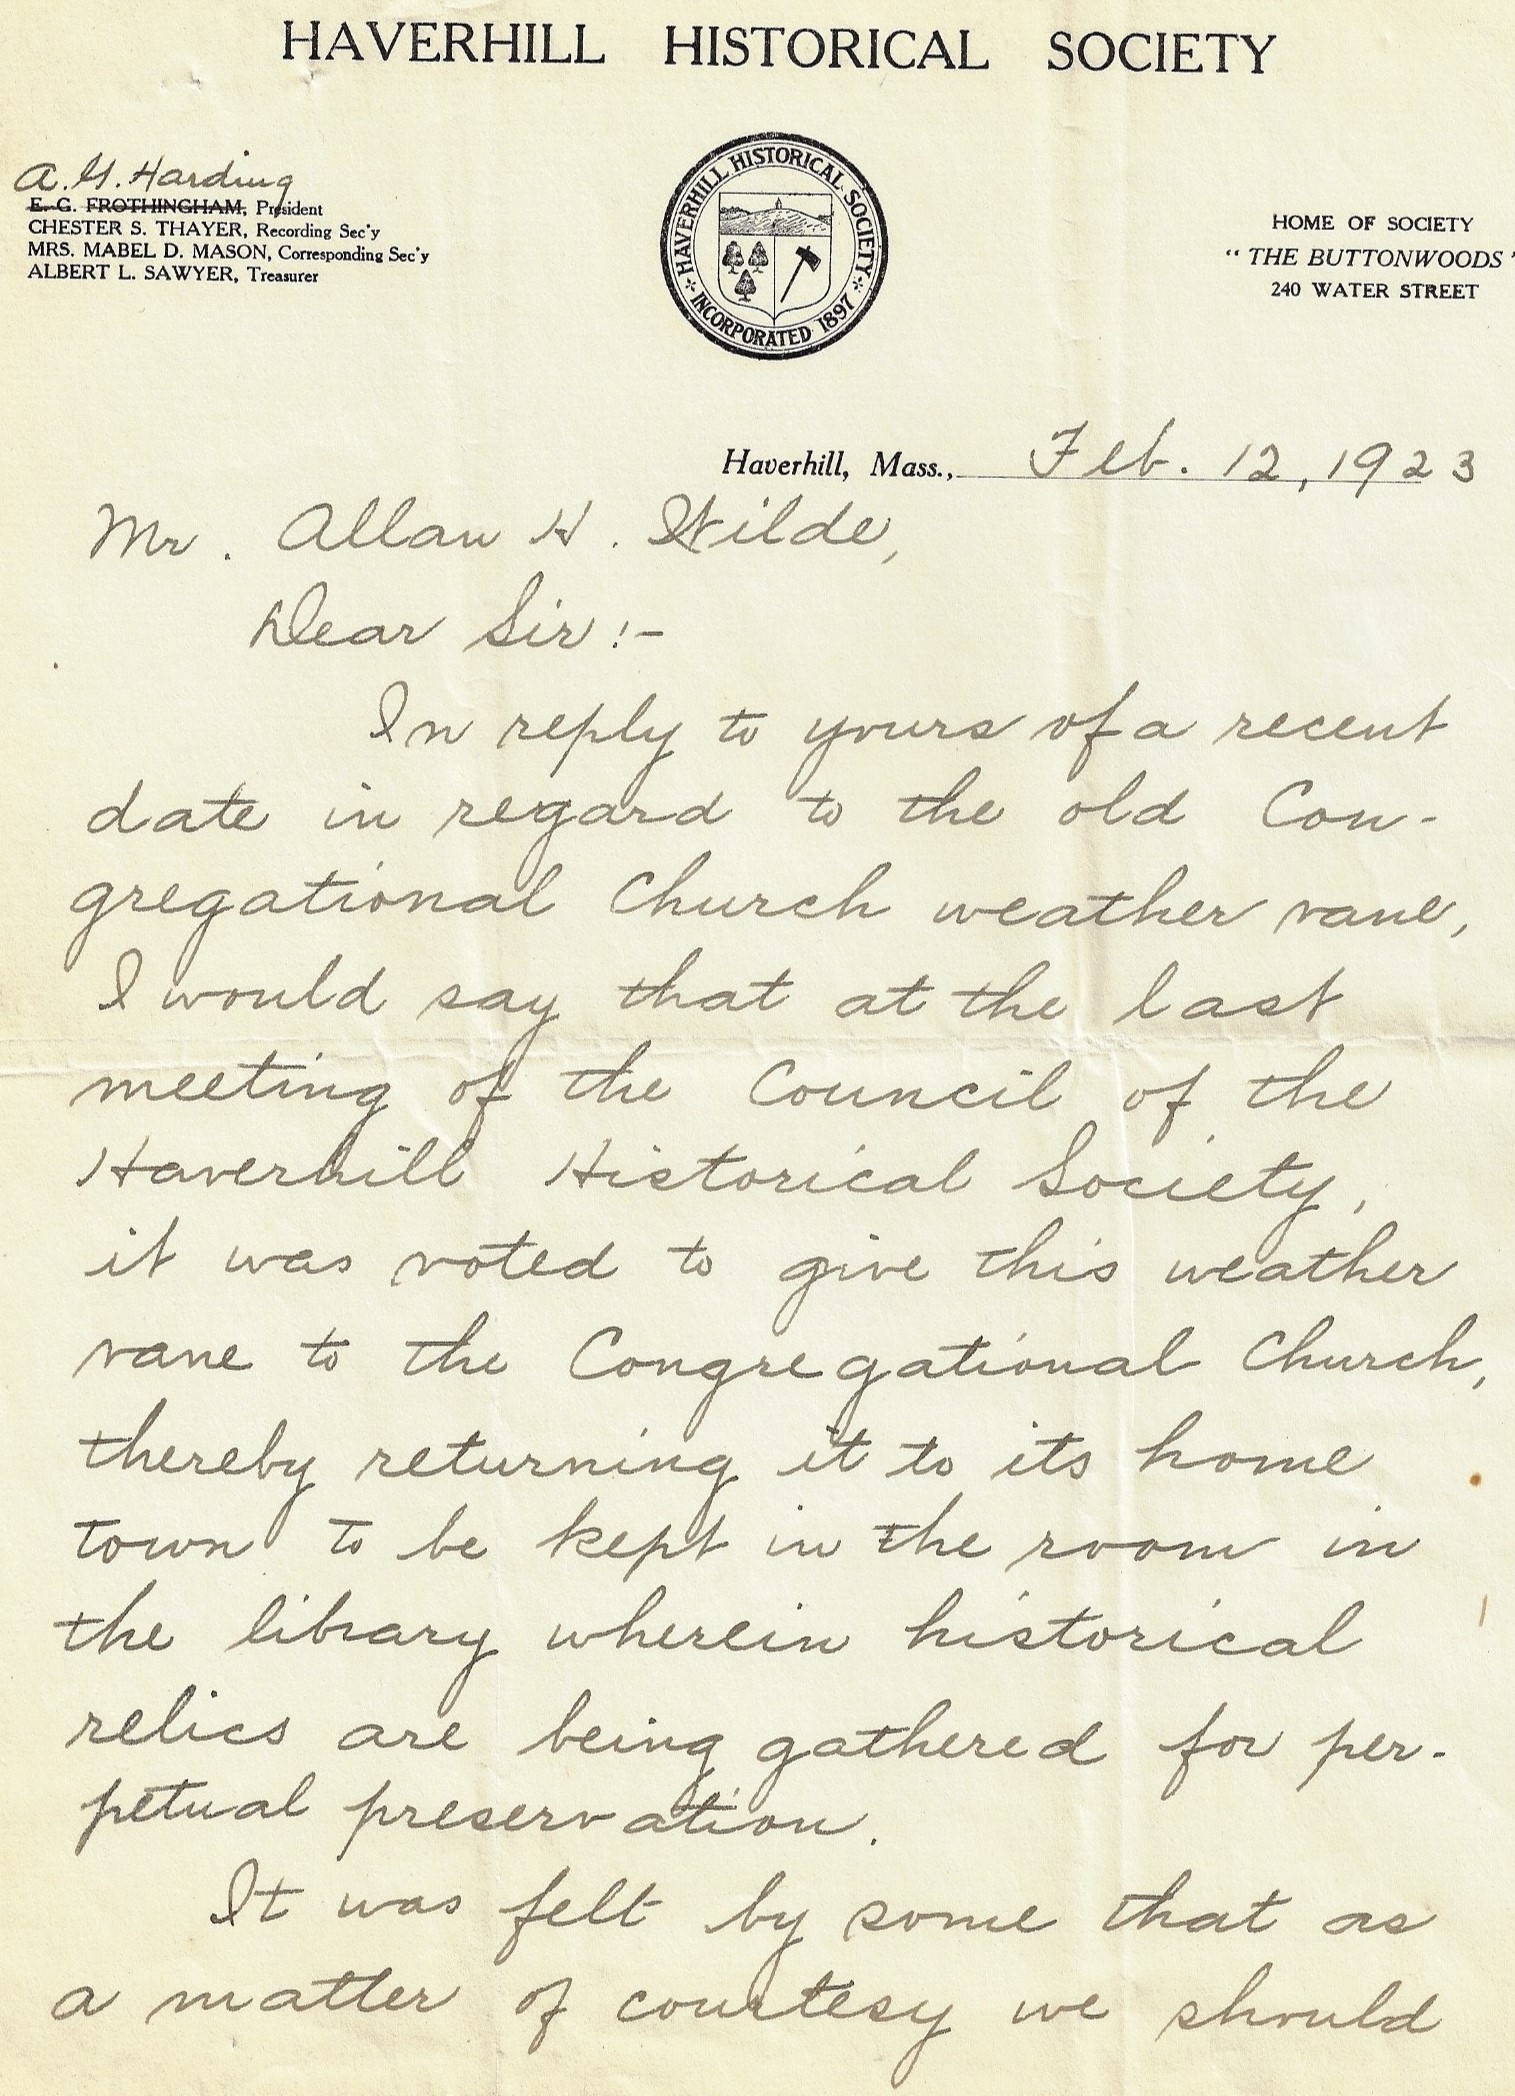 HAVERHILL HISTORICAL SOCIETY
A. G. Harding
E. G. FROTHINGHAM, President
CHESTER S. THAYER, Recording Sec'y
MRS. MABEL D. MASON, Corresponding Sec'y
ALBERT L. SAWYER, Treasurer
HAVERHILL HISTORICAL SOCIETY
INCORPORATED 1897
HOME OF SOCIETY
"THE BUTTONWOODS"
240 WATER STREET
Haverhill, Mass., Feb. 12, 1923
Mr. Allan H. Wilde,
Dear Sir:-
In reply to yours of a recent
date in regard to the old Con-
gregational Church weather vane,
I would say that at the last
meeting of the Council of the
Haverhill Historical Society,
it was voted to give this weather
vane to the Congregational Church,
thereby returning it to its home
town to be kept in the room in
the library wherein historical
relics are being gathered for per-
petual preservation.
It was felt by some that as
a matter of courtesy we should